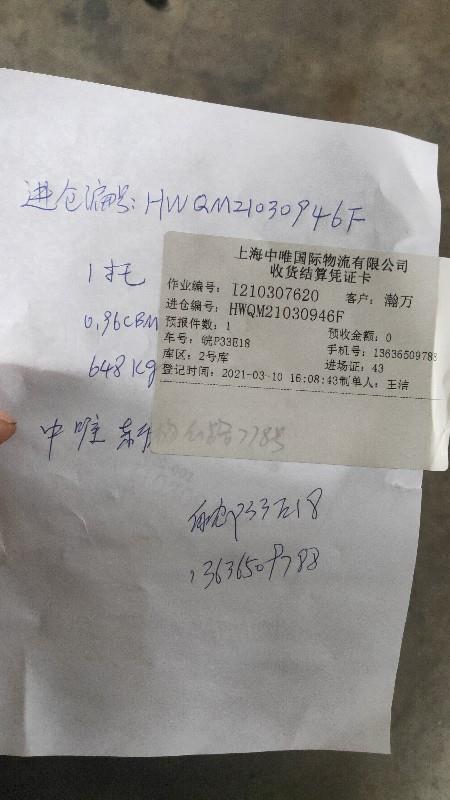 进仓编号: HWQM21030946F
1托
0.96CBM
648Kg
中唯
上海中唯国际物流有限公司
收货结算凭证卡
作业编号: I210307620 客户: 瀚万
进仓编号: HWQM21030946F
预报件数: 1 预收金额: 0
车号: 皖P33E18 手机号: 13636509788
库区: 2号库 进场证: 43
登记时间: 2021-03-10 16:08:43 制单人: 王洁
778号
皖P33E18
13636509788